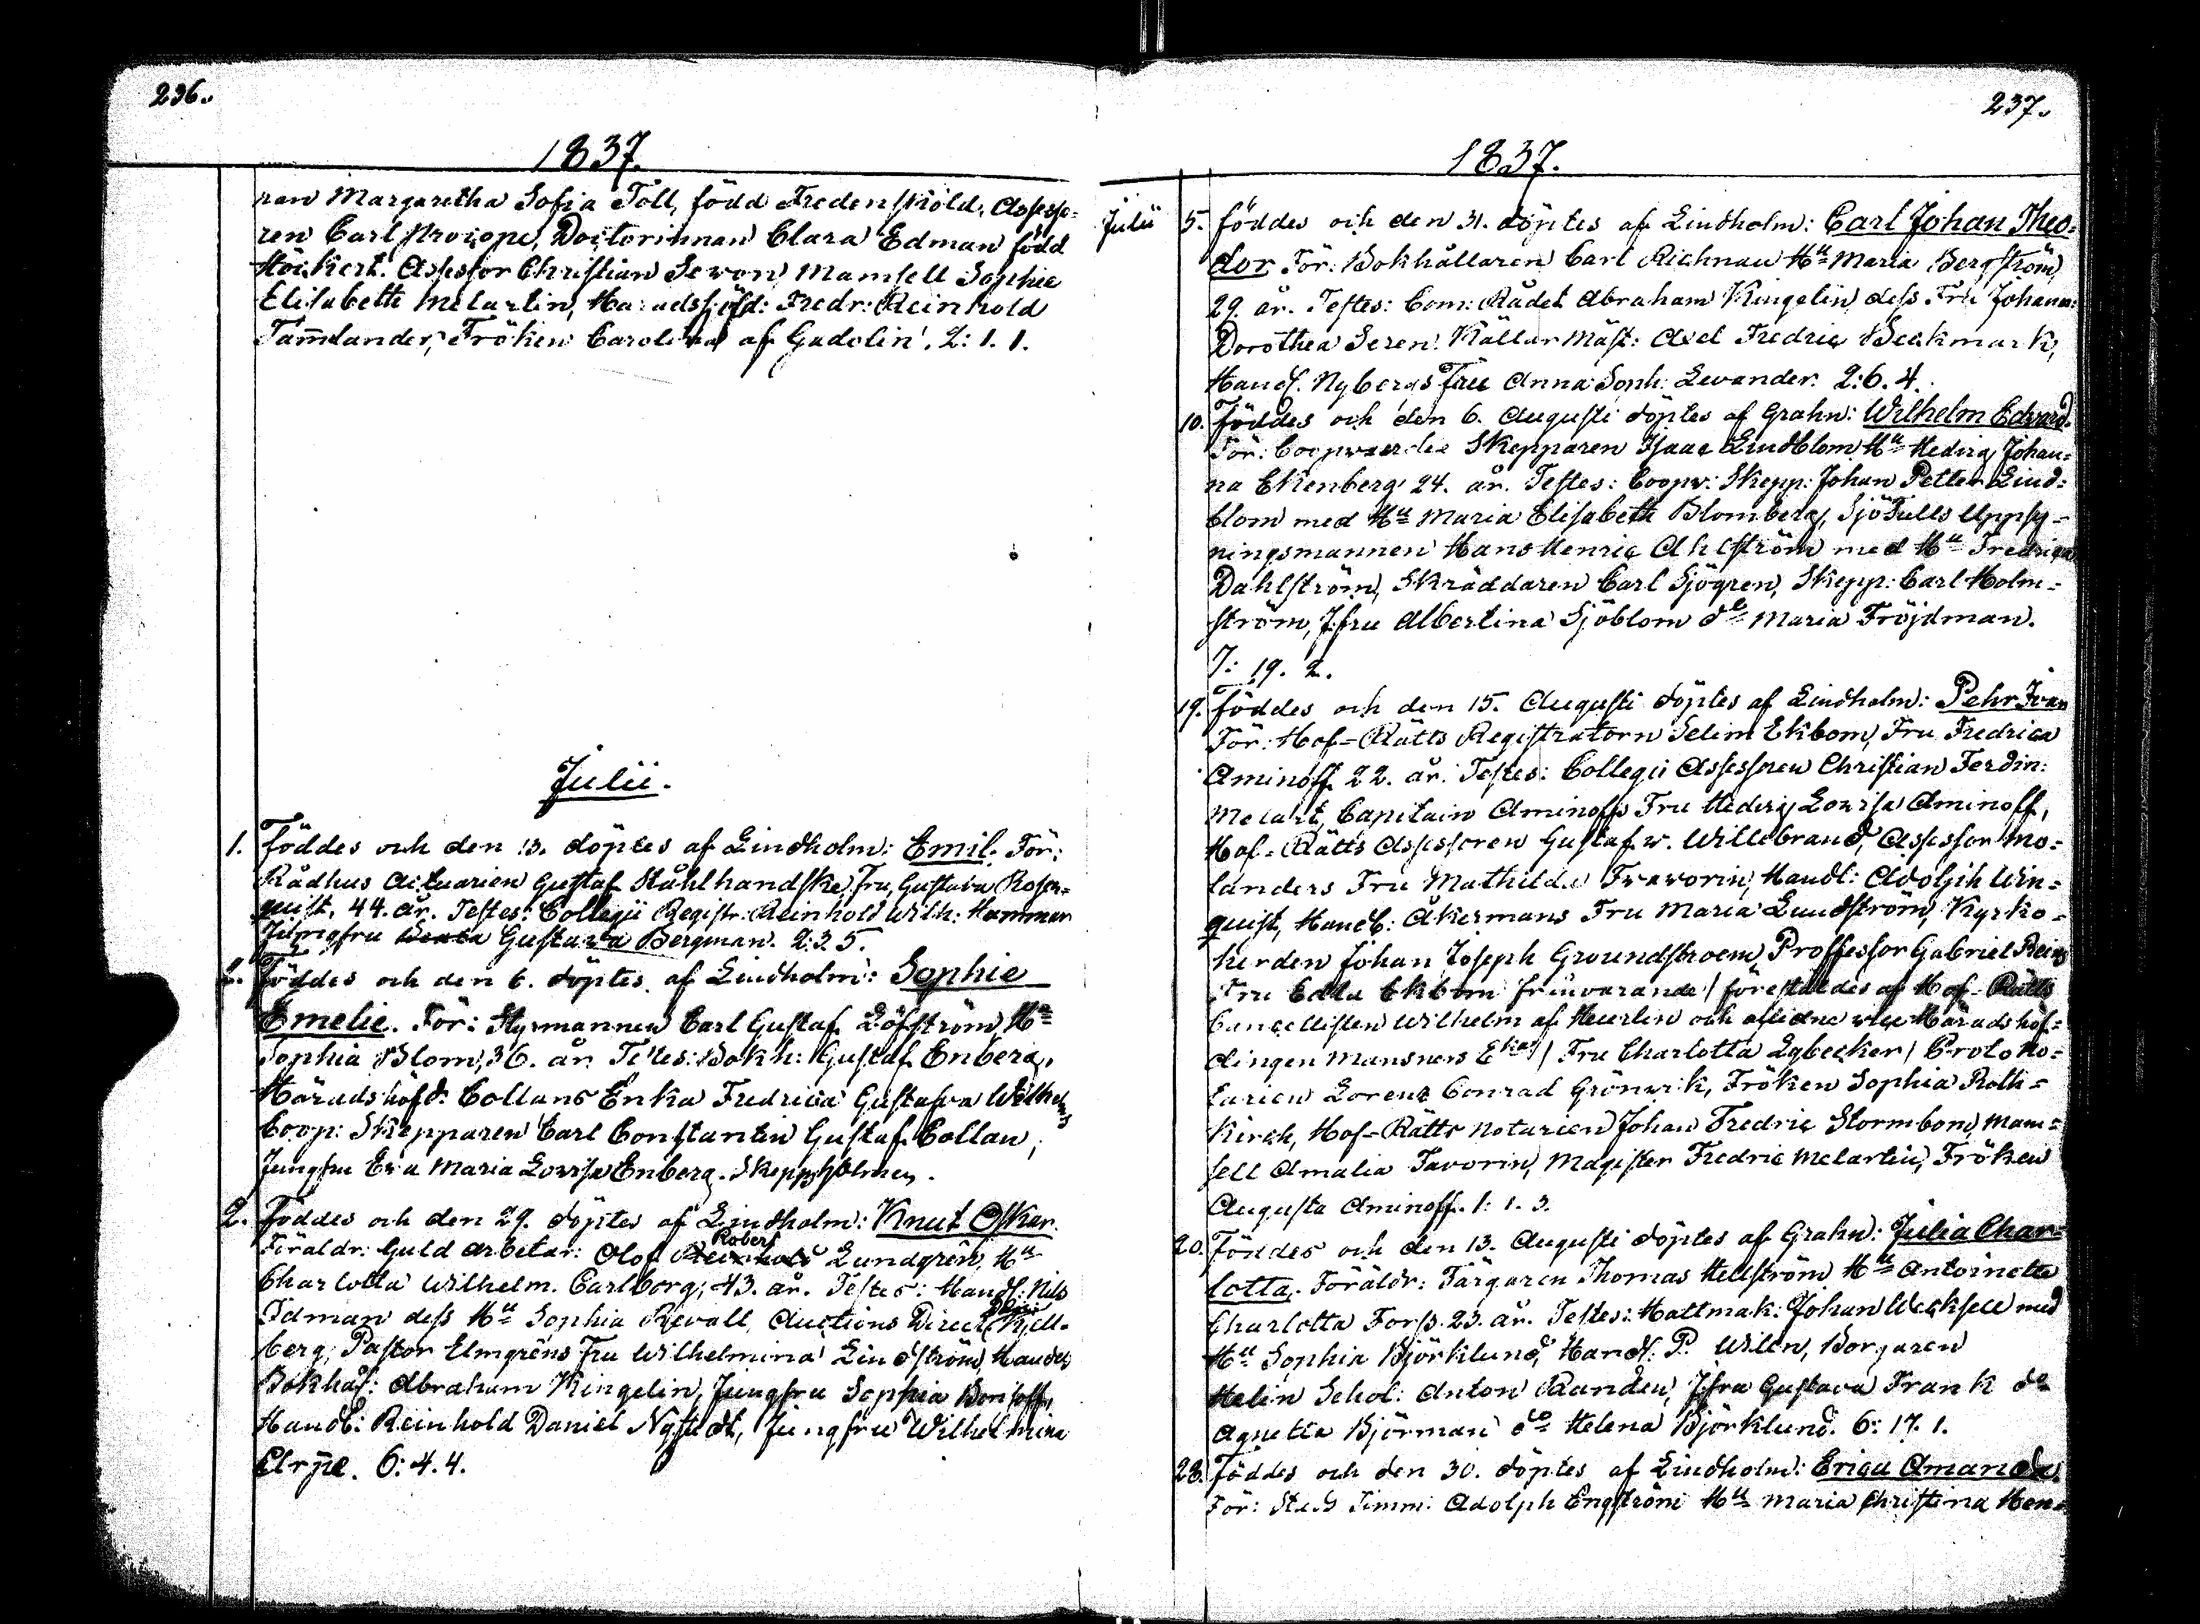 236.
1837.
ran Margaretha Sofia Toll, född Fredenskiöld, Assesso-
ren Carl Procopé, Doctorinnan Clara Edman född
Höckert. Assessor Christian Sewon, Mamsell Sophie
Elisabeth Melartin, Häradshöfd: Fredr: Reinhold
Tam̅elander, Fröken Carolina af Gadolin. 2: 1. 1.
Julii.
1. Föddes och den 13. döptes af Lindholm: Emil. För:
Rådhus Actuarien Gustaf Stålhandske, Fru, Gustava Rosen-
quist, 44. år. Testes: Collegii Registr. Reinhold Wilh: Hammar
Jungfru Gustava Bergman. 2: 3 5.
2. Föddes och den 6. döptes af Lindholm: Sophie
Emelie. För: Styrmannen Carl Gustaf Löfström, Hu
Sophia Blom, 36. år. Testes: Bokh: Gustaf Enberg,
Häradshöfd: Collans Enka Fredrica Gustafva Wilhelms
Coop: Skepparen Carl Constantin Gustaf Collan,
Jungfru Eva Maria Lovisa Enberg. Skeppsholmen.
2. Föddes och den 29. döptes af Lindholm: Knut Oskar.
Föräldr: Guld arbetar: Olof Robert Lundgrén, Hu
Charlotta Wilhelm. Carlborg, 43. år. Testes: Handl: Nils
Idman dess Hu Sophia Revall, Auctions Direct Kjell-
berg, Pastor Elmgréns Fru Wilhelmina Lindström, Handls
Bokhål: Abraham Kingelin, Jungfru Sophia Borisoff,
Handl: Reinhold Daniel Nystedt, Jungfru Wilhelmina
6: 4. 4.
237.
1837.
Julii 5. föddes och den 31. döptes af Lindholm: Carl Johan Theo-
dor För: Bokhållaren Carl Richnau Hu Maria Bergström,
29. år. Testes: Com: Rådet Abraham Kingelin, dess Fru Johanna
Dorothea Seren. Källar Mäst: Axel Fredric Beckmark,
Handl. Nybergs Fru Anna Soph: Levander. 2: 6. 4.
10. Föddes och den 6. Augusti döptes af Grahn: Wilhelm Edvard.
För: Coopvaerdie Skepparen Isaac Lindblom Hu Hedvig Johan-
na Ekenberg 24. år. Testes: Coopv: Skepp: Johan Petter Lind-
blom med Hu Maria Elisabeth Blomberg, Sjö Tulls Uppsy-
ningsmannen Hans Henric Ahlström med Hu Fredrica
Dahlström, Skräddaren Carl Sjögren, Skepp: Carl Holm-
ström, Jfru Albertina Sjöblom do Maria Fröjdman.
7: 19. 2.
19. Föddes och den 15. Augusti döptes af Lindholm: Pehr Ivan
För: Hof-Rätts Registratorn Selim Ekbom, Fru Fredrica
Aminoff 22. år. Testes: Collegii Assessoren Christian Ferdin:
Melart, Capitain Aminoffs Fru Hedvig Lovisa Aminoff,
Hof-Rätts Assessoren Gustaf v. Willebrand, Assessor Mo-
landers Fru Mathilda Favorin, Handl: Adolph Win-
quist, Handl: Åkermans Fru Maria Lundström, Kyrko-
herden Johan Joseph Groundstroem, Proffessor Gabriel Rein
Fru Edla Ekbom frånvarande / föreställdes af Hof-Rätts
Cancellisten Wilhelm af Heurlin och aflidne vice Häradshöf-
dingen Mansners Eka / Fru Charlotta Lybecker / Protoko-
larien Lorenz Conrad Grönvik, Fröken Sophia Roth-
Kirch, Hof-Rätts Notarien Johan Fredric Stormbom, Mam-
sell Amalia Tavorin, Magister Fredric Melartin, Fröken
Augusta Aminoff. 1: 1. 3.
20. Föddes och den 13. Augusti döptes af Grahn: Julia Char-
lotta. Föräldr: Färgaren Thomas Hellström Hu Antoinetta
Charlotta Forss. 23. år. Testes: Hattmak: Johan Wecksell med
Hu Sophia Björklund, Handl: P. Wilén, Borgaren
Helin Schol: Anton Randen, Jfru Gustava Frank do
Agnetta Björman do Helena Björklund. 6: 17. 1.
28. Föddes och den 30. döptes af Lindholm: Erica Amanda.
För: Stads Timm: Adolph Engström Hu Maria Christina Hen-